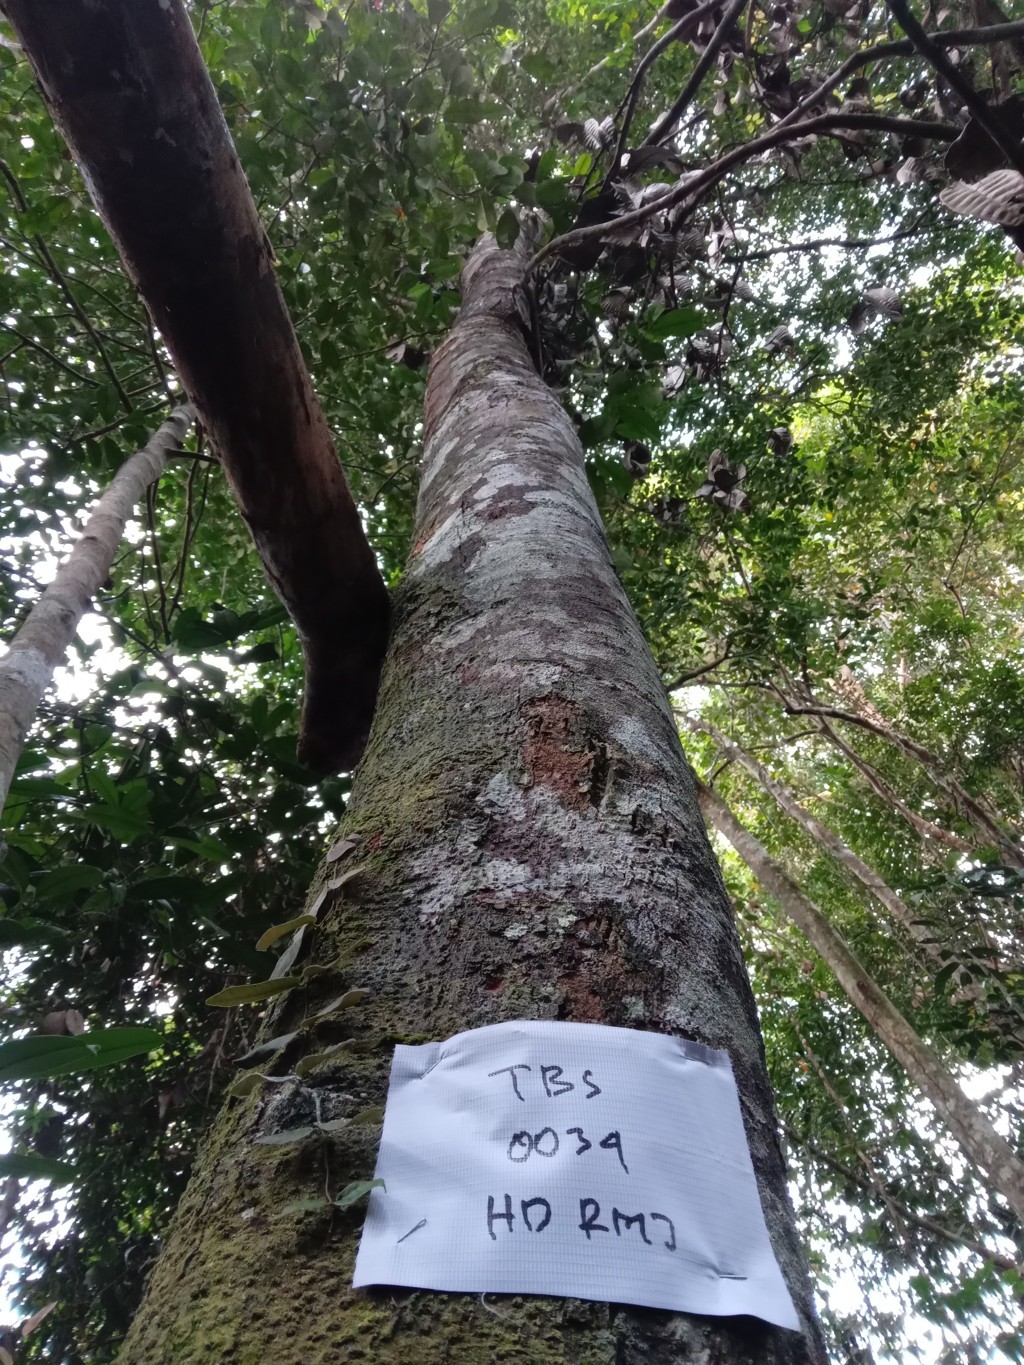 TBS
0039
HD RMJ